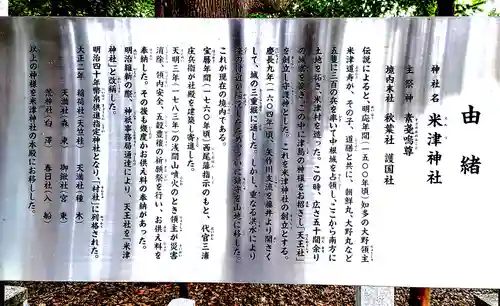 由緒
神社名　米津神社
主祭神　素戔嗚尊
境内末社　秋葉社　護国社
伝説によると、明応年間（一五〇〇年頃）知多の大野領主
米津道寿が、その子、道勝と共に、朝鮮丸、大野丸など
五隻に三百の兵を率いて中根城を占領し、ここから南方に
土地を拓き、米津村を造った。この時、広さ五十間余り
この中に津島の神様をお招きし「天王社」
を創立し守護神とした。これを米津神社の創立とする。
慶長九年（一六〇四年）頃、矢作川支流を藤井まで開さく
して、城の三重堀に通した。しかし、度重なる洪水により
これが現在の境内である。
宝暦年間（一七六〇年頃）西尾藩指示のもと、代官三浦
庄兵衛が社殿を建築し寄進した。
天明三年（一七八三年）の浅間山噴火のとき領主が災害
消除、領内安全、五穀豊穣の祈願祭を行い、お供え料を
奉納した。その後も幾度かお供え料の奉納があった。
明治維新の際、神祇事務局通達により、天王社を「米津
神社」と改称した。
明治四十年幣帛供進指定神社となり、「村社」に列格された。
大正二年　稲荷社（天竺桂）　天満社（種木）
天満社（森東）　御鍬社（宮東）
荒神社（白澤）　春日社（入船）
以上の神様を米津神社の本殿にお祀しした。